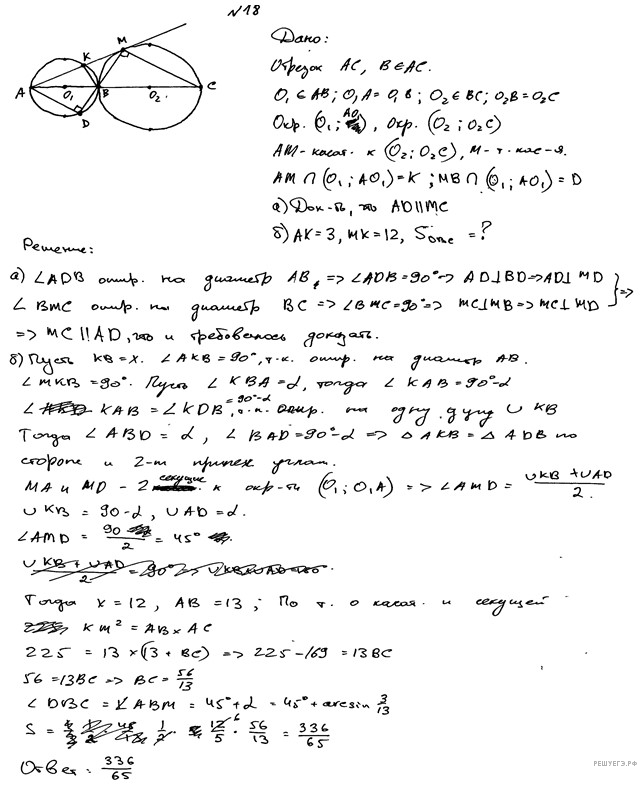 №18
Дано:
Отрезок AC, B∈AC.
O₁∈AB; O₁A=O₁B; O₂∈BC; O₂B=O₂C
Окр. (O₁; AO₁), Окр. (O₂; O₂C)
AM - касат. к (O₂; O₂C), M - т. кас-я.
AM ∩ (O₁; AO₁) = K; MB ∩ (O₁; AO₁) = D
а) Док-ть, что AD||MC
б) AK=3, MK=12, S = ?
K M
A O₁ B O₂ C
D
Решение:
а) ∠ADB опир. на диаметр AB, => ∠ADB=90° => AD⊥BD => AD⊥MD
∠BMC опир. на диаметр BC => ∠BMC=90° => MC⊥MB => MC⊥MD } =>
=> MC || AD, что и требовалось доказать.
б) Пусть KB=x. ∠AKB=90°, т.к. опир. на диаметр AB.
∠MKB=90°. Пусть ∠KBA=α, тогда ∠KAB=90°-α
∠KAB = ∠KDB = 90°-α, т.к. опир. на одну дугу ∪KB
Тогда ∠ABD = α, ∠BAD=90°-α => △AKB = △ADB по
стороне и 2-м прилеж углам.
MA и MD - 2 секущие к окр-ти (O₁; O₁A) => ∠AMD = (∪KB + ∪AD)/2.
∪KB = 90-α, ∪AD=α.
∠AMD = 90/2 = 45°
(∪KB + ∪AD)/2 = 90° =>
Тогда x=12, AB=13; По т. о касат. и секущей
KM² = AB×AC
225 = 13×(13+BC) => 225-169 = 13BC
56=13BC => BC = 56/13
∠DBC = ∠ABM = 45°+α = 45°+arcsin 3/13
S = 1/2 · 12/5 · 56/13 = 336/65
Ответ: 336/65
РЕШУЕГЭ.РФ